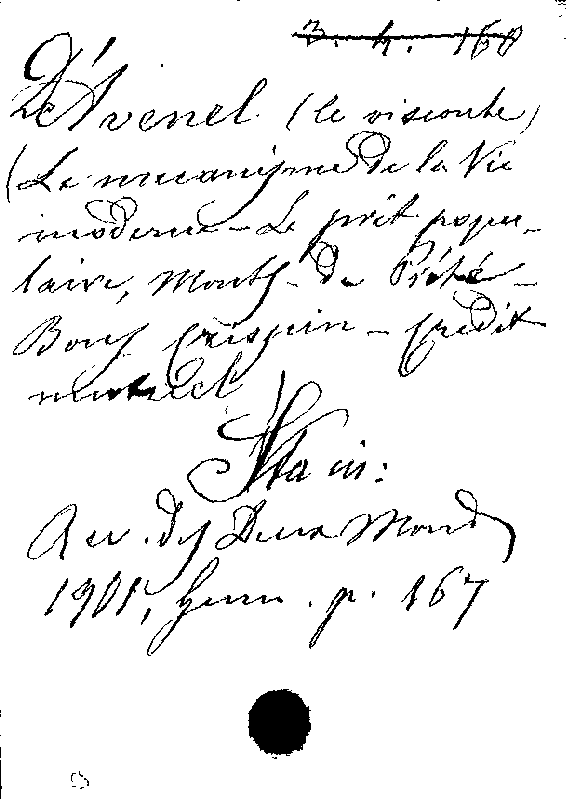 3. 4. 168
D'Avenel (le visconte)
(Le mecanisme de la Vie
moderne - Le prêt popu-
laire, Monts-de Piété -
Bons Crispin - Crédit
mutuel
Sta in:
Rev. des Deux Mondes
1901, p. 167